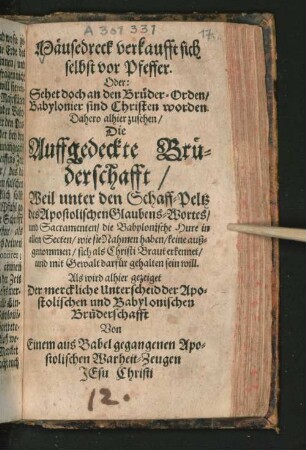 A 301 331
Mäusedreck verkaufft sich
selbst vor Pfeffer.
Oder:
Sehet doch an den Brüder-Orden/
Babylonier sind Christen worden.
Dahero alhier zusehen/
Die
Auffgedeckte Brü-
derschafft/
Weil unter den Schaff-Peltz
des Apostolischen Glaubens-Wortes/
und Sacramenten/ die Babylonische Hure in
allen Secten/ wie sie Nahmen haben/ keine auß-
genommen/ sich als Christi Braut erkennet/
und mit Gewalt darfür gehalten sein will.
Als wird alhier gezeiget
Der merckliche Unterscheid der Apo-
stolischen und Babylonischen
Brüderschafft
Von
Einem aus Babel gegangenen Apo-
stolischen Warheit-Zeugen
JEsu Christi
12.